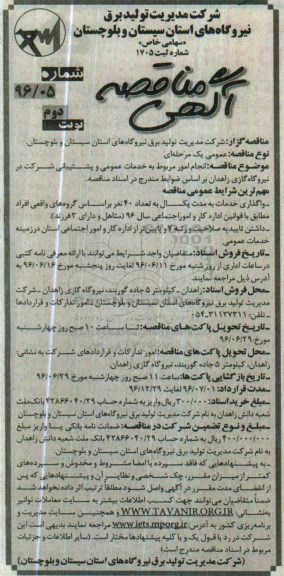 شرکت مدیریت تولید برق
نیروگاه‌های استان سیستان و بلوچستان
«سهامی خاص»
شماره ثبت ۱۷۰۵
آگهی مناقصه
شماره
۹۶/۰۵
نوبت دوم
مناقصه گزار: شرکت مدیریت تولید برق نیروگاه‌های استان سیستان و بلوچستان
نوع مناقصه: عمومی یک مرحله‌ای
موضوع مناقصه: انجام امور مربوط به خدمات عمومی و پشتیبانی شرکت در
نیروگاه گازی زاهدان بر اساس ضوابط مندرج در اسناد مناقصه.
مهم‌ترین شرایط عمومی مناقصه
-واگذاری خدمات به مدت یکسال به تعداد ۴۰ نفر براساس گروه‌های واقعی افراد
مطابق با قوانین اداره کار و امور اجتماعی سال ۹۶ (متاهل و دارای ۲ فرزند).
-داشتن تایید به صلاحیت و رتبه ۷ و پایین‌تر از اداره کار و امور اجتماعی استان در زمینه
خدمات عمومی
-تاریخ فروش اسناد: متقاضیان واجد شرایط می‌توانند با ارائه معرفی نامه کتبی
در ساعات اداری از روز شنبه مورخ ۹۶/۰۶/۱۱ لغایت روز پنجشنبه مورخ ۹۶/۰۶/۱۶ به
آدرس ذیل مراجعه نمایند.
-محل فروش اسناد: زاهدان - کیلومتر ۵ جاده گوربند، نیروگاه گازی زاهدان - شرکت
مدیریت تولید برق نیروگاه‌های استان سیستان و بلوچستان - امور تدارکات و قراردادها
- تلفن: ۳۱۱۳۷۳۱۱-۰۵۴
-تاریخ تحویل پاکت‌های مناقصه: تا ساعت ۱۰ صبح روز چهارشنبه
مورخ: ۹۶/۰۶/۲۹
-محل تحویل پاکت‌های مناقصه: امور تدارکات و قراردادهای شرکت به نشانی:
زاهدان، کیلومتر ۵ جاده گوربند، نیروگاه گازی زاهدان.
-تاریخ بازگشایی پاکت‌ها: ساعت ۱۰ صبح روز چهارشنبه مورخ ۹۶/۰۶/۲۹
-مدت قرارداد: ۹۶/۰۷/۰۱ لغایت ۹۶/۱۲/۲۹
-مبلغ خرید اسناد: ۳۰۰/۰۰۰ ریال واریز به شماره حساب ۴۲۸۶۶۰۴۰/۲۹ بانک ملت
شعبه دانش زاهدان به نام شرکت مدیریت تولید برق نیروگاه‌های استان سیستان و بلوچستان
-مبلغ و نوع تضمین شرکت در مناقصه: ضمانت نامه بانکی یا واریز مبلغ
۴۰۰/۰۰۰/۰۰۰ ریال به شماره حساب ۴۲۸۶۶۰۴۰/۲۹ بانک ملت شعبه دانش زاهدان
به نام شرکت مدیریت تولید برق نیروگاه‌های استان سیستان و بلوچستان
-به پیشنهادهایی که فاقد سپرده یا امضا مشروط و مخدوش و سپرده‌های
کمتر از میزان مقرر، چک شخصی و نظایر آن و پیشنهادهایی که پس
از انقضای مدت مقرر در آگهی واصل شود مطلقا ترتیب اثر داده نخواهد شد
ضمناً متقاضیان می‌توانند جهت کسب اطلاعات بیشتر به سایت معاملات توانیر
به‌نشانی: WWW.TAVANIR.ORG.IR و همچنین سایت مدیریت و
برنامه‌ریزی کشور به آدرس: www.iets.mporg.ir مراجعه نمایند بدیهی است این
شرکت در رد یا قبول یک و یا کلیه پیشنهادها مختار است. (سایر اطلاعات و جزئیات
مربوط در اسناد مناقصه مندرج است)
(شرکت مدیریت تولید برق نیروگاه‌های استان سیستان و بلوچستان)